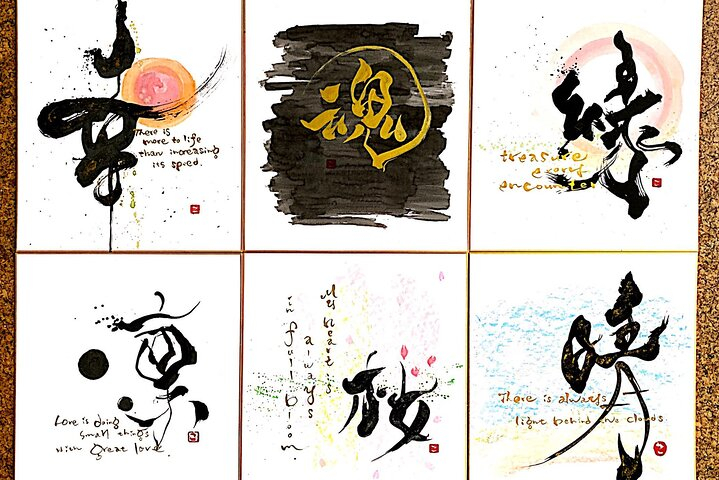 幸
There is
more to life
than increasing
its speed.
魂
縁
treasure
every
encounter
Love is doing
small things
with great love.
My heart is
always
in full bloom.
桜
暁
There is always
light behind the clouds.